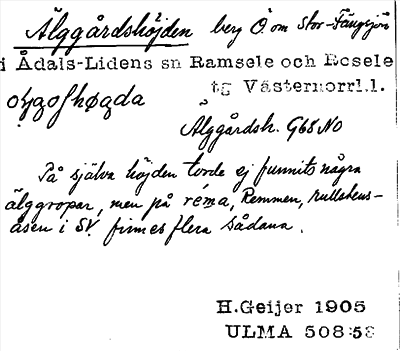 Älggårdshöjden berg Ö. om Stor-Fängsjön
i Ådals-Lidens sn Ramsele och Resele
tg Västernorrl.l.
Älggårdsh. G68NO
På själva höjden torde ej funnits några
älggropar, men på réma, Remmen, rullstens-
åsen i SV. finnes flera sådana.
H.Geijer 1905
ULMA 508:58